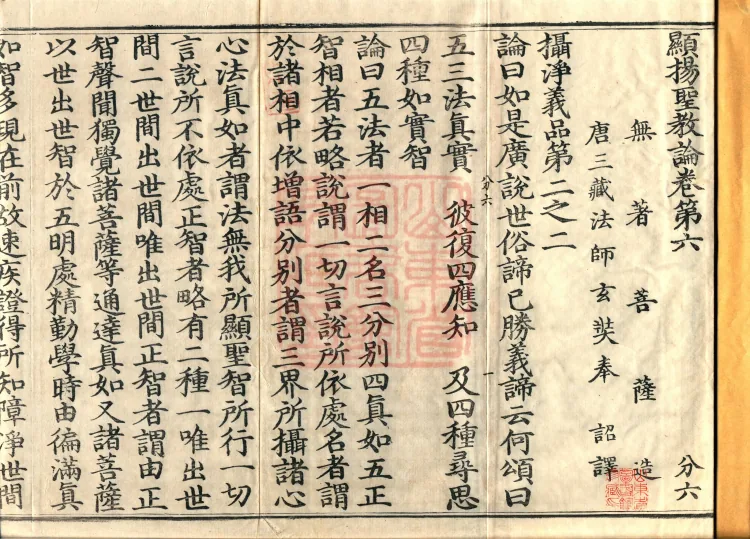 顯揚聖教論卷第六 分六
無著菩薩造
唐三藏法師玄奘奉 詔譯
攝淨義品第二之二
論曰如是廣說世俗諦已勝義諦云何頌曰
分六 一
五三法真實 彼復四應知 及四種尋思
四種如實智
論曰五法者一相二名三分別四真如五正
智相者若略說謂一切言說所依處名者謂
於諸相中依增語分別者謂三界所攝諸心
心法真如者謂法無我所顯聖智所行一切
言說所不依處正智者略有二種一唯出世
間二世間出世間唯出世間正智者謂由正
智聲聞獨覺諸菩薩等通達真如又諸菩薩
以世出世智於五明處精勤學時由徧滿真
如智多現在前故速疾證得所知障淨世間